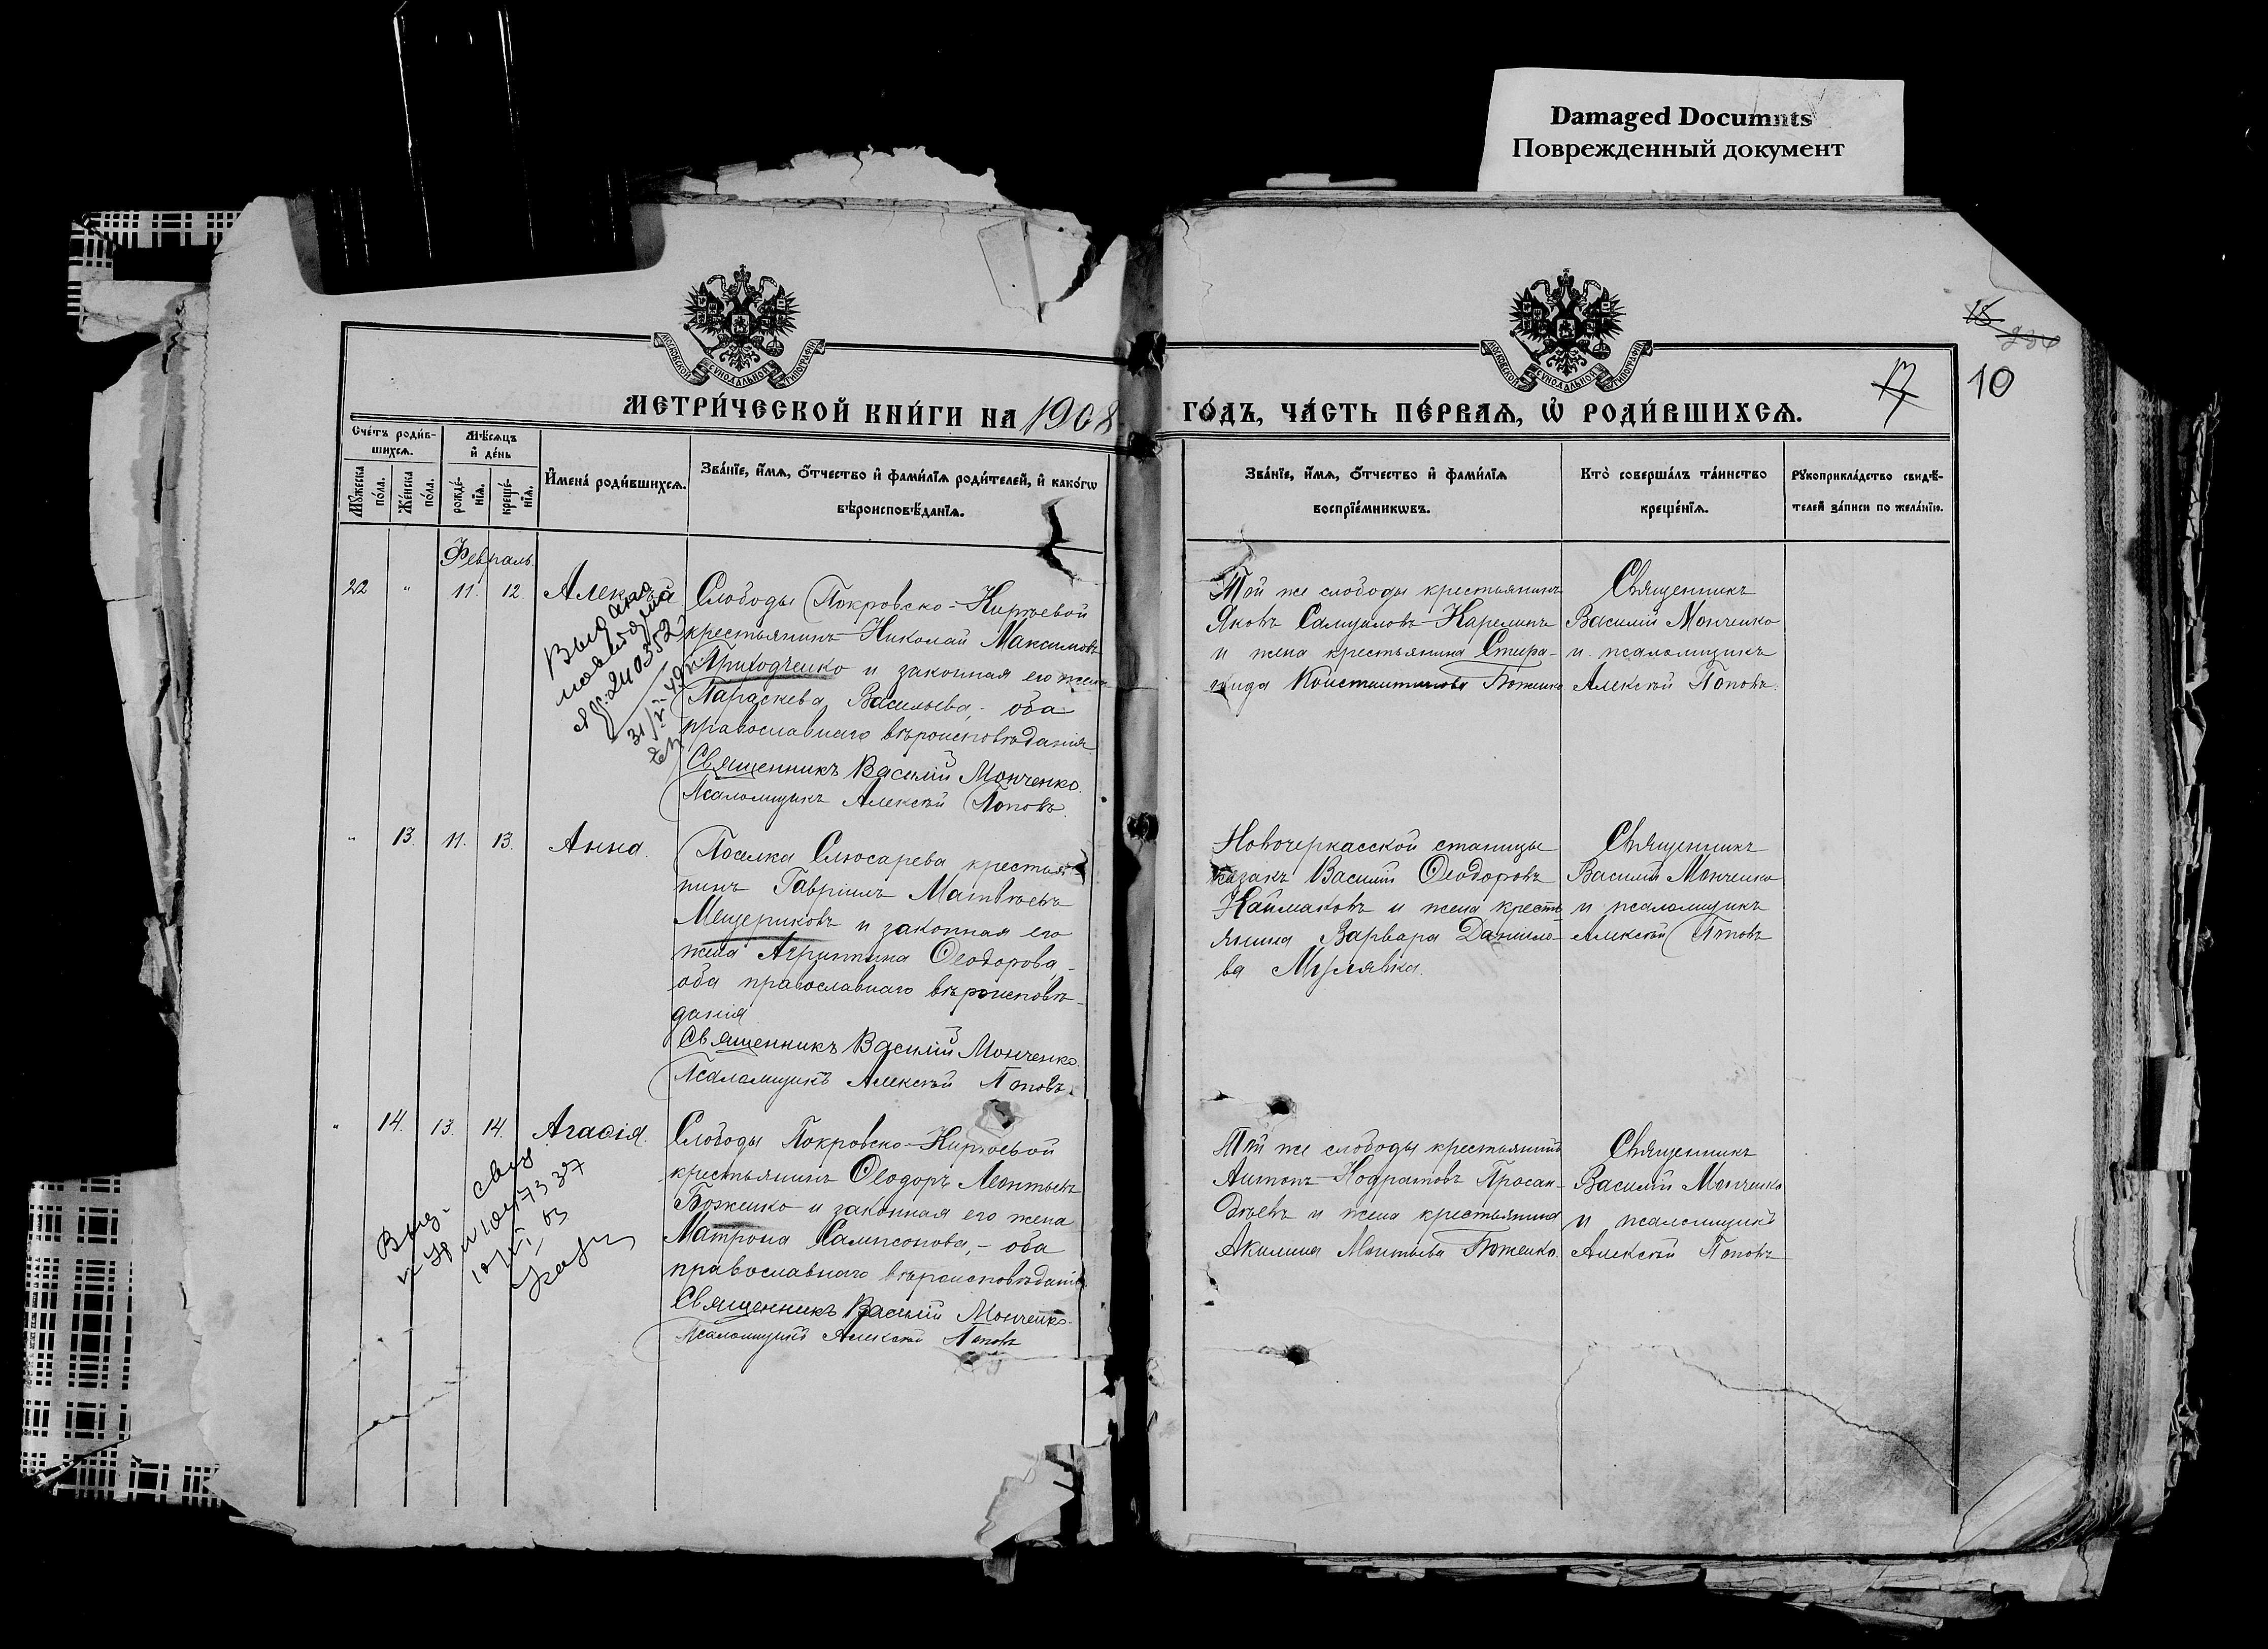 Damaged Documnts
Поврежденный документ
МОСКОВСКОЙ СѴНОДАЛЬНОЙ ТИПОГРАФІИ
МОСКОВСКОЙ СѴНОДАЛЬНОЙ ТИПОГРАФІИ
15
17
10
МЕТРИ́ЧЕСКОЙ КНИ́ГИ НА 1908
ГО́ДЪ, ЧА́СТЬ ПЕ́РВАѦ, Ѡ҆ РОДИ́ВШИХСѦ.
Сче́тъ роди́в-
шихсѧ.
Мꙋ́жеска
по́ла.
Же́нска
по́ла.
Мѣ́сѧцъ
и҆ де́нь
рожде́-
нїѧ.
креще́-
нїѧ.
И҆мена̀ роди́вшихсѧ.
Зва́нїе, и҆́мѧ, ѻ҆́тчество и҆ фами́лїѧ роди́телей, и҆ како́гѡ
вѣроисповѣ́данїѧ.
Зва́нїе, и҆́мѧ, ѻ҆́тчество и҆ фами́лїѧ
воспрїе́мникѡвъ.
Кто̀ соверша́лъ та́инство
креще́нїѧ.
Рꙋкоприкла́дство свидѣ́-
телей за́писи по жела́нїю.
Февраль.
22 " 11. 12. Алексѣй
Слободы Покровско-Кирѣевой
крестьянинъ Николай Максимовъ
Приходченко и законная его жена
Параскева Васильева,- оба
православнаго вѣроисповѣданія.
Священникъ Василій Монченко.
Псаломщикъ Алексѣй Поповъ.
Той же слободы крестьянинъ
Яковъ Самуиловъ
и жена крестьянина Стефа-
нида Константинова Боженко
Священникъ
Василій Монченко
и псаломщикъ
Алексѣй Поповъ.
" 13. 11. 13. Анна.
Поселка Слюсарева крестья-
нинъ Гавріилъ Матвѣевъ
Мещериковъ и законная его
жена Агриппина Ѳеодорова,-
оба православнаго вѣроисповѣ-
данія
Священникъ Василій Монченко.
Псаломщикъ Алексѣй Поповъ.
Новочеркасской станицы
казакъ Василій Ѳеодоровъ
Каймаковъ и жена кресть-
янина Варвара Данило-
ва
Священникъ
Василій Монченко
и псаломщикъ
Алексѣй Поповъ
" 14. 13. 14. Агаѳія.
Слободы Покровско-Кирѣевой
крестьянинъ Ѳеодоръ Леонтьевъ
Боженко и законная его жена
Матрона Сампсонова,- оба
православнаго вѣроисповѣданія
Священникъ Василій Монченко.
Псаломщикъ Алексѣй Поповъ
Той же слободы крестьянинъ
Антонъ
и жена крестьянина
Акилина Леонтьева Боженко.
Священникъ
Василій Монченко
и псаломщикъ
Алексѣй Поповъ